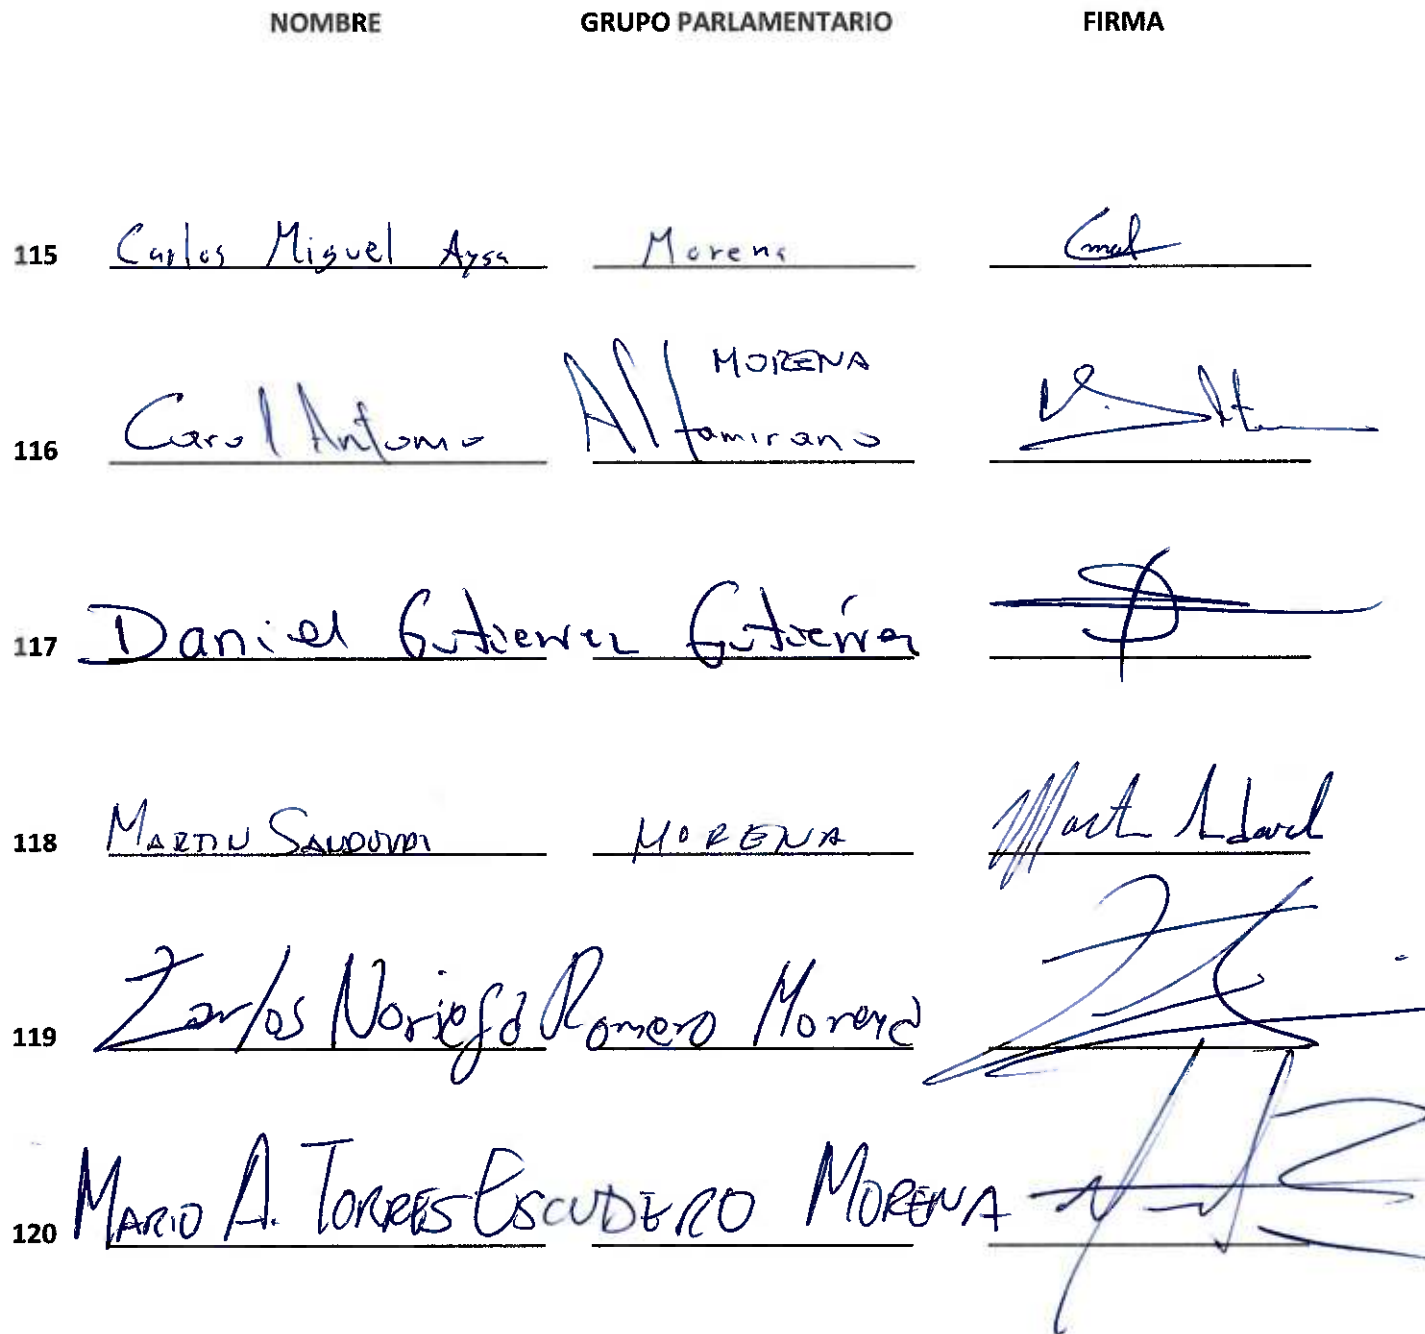 NOMBRE GRUPO PARLAMENTARIO FIRMA
115 Carlos Miguel Aysa Morena
MORENA
116 Carol Antonio Altamirano
117 Daniel Gutierrez Gutiérrez
118 MARTIN SANDOVAL MORENA
119 Carlos Noriega Romero Morena
120 MARIO A. TORRES ESCUDERO MORENA